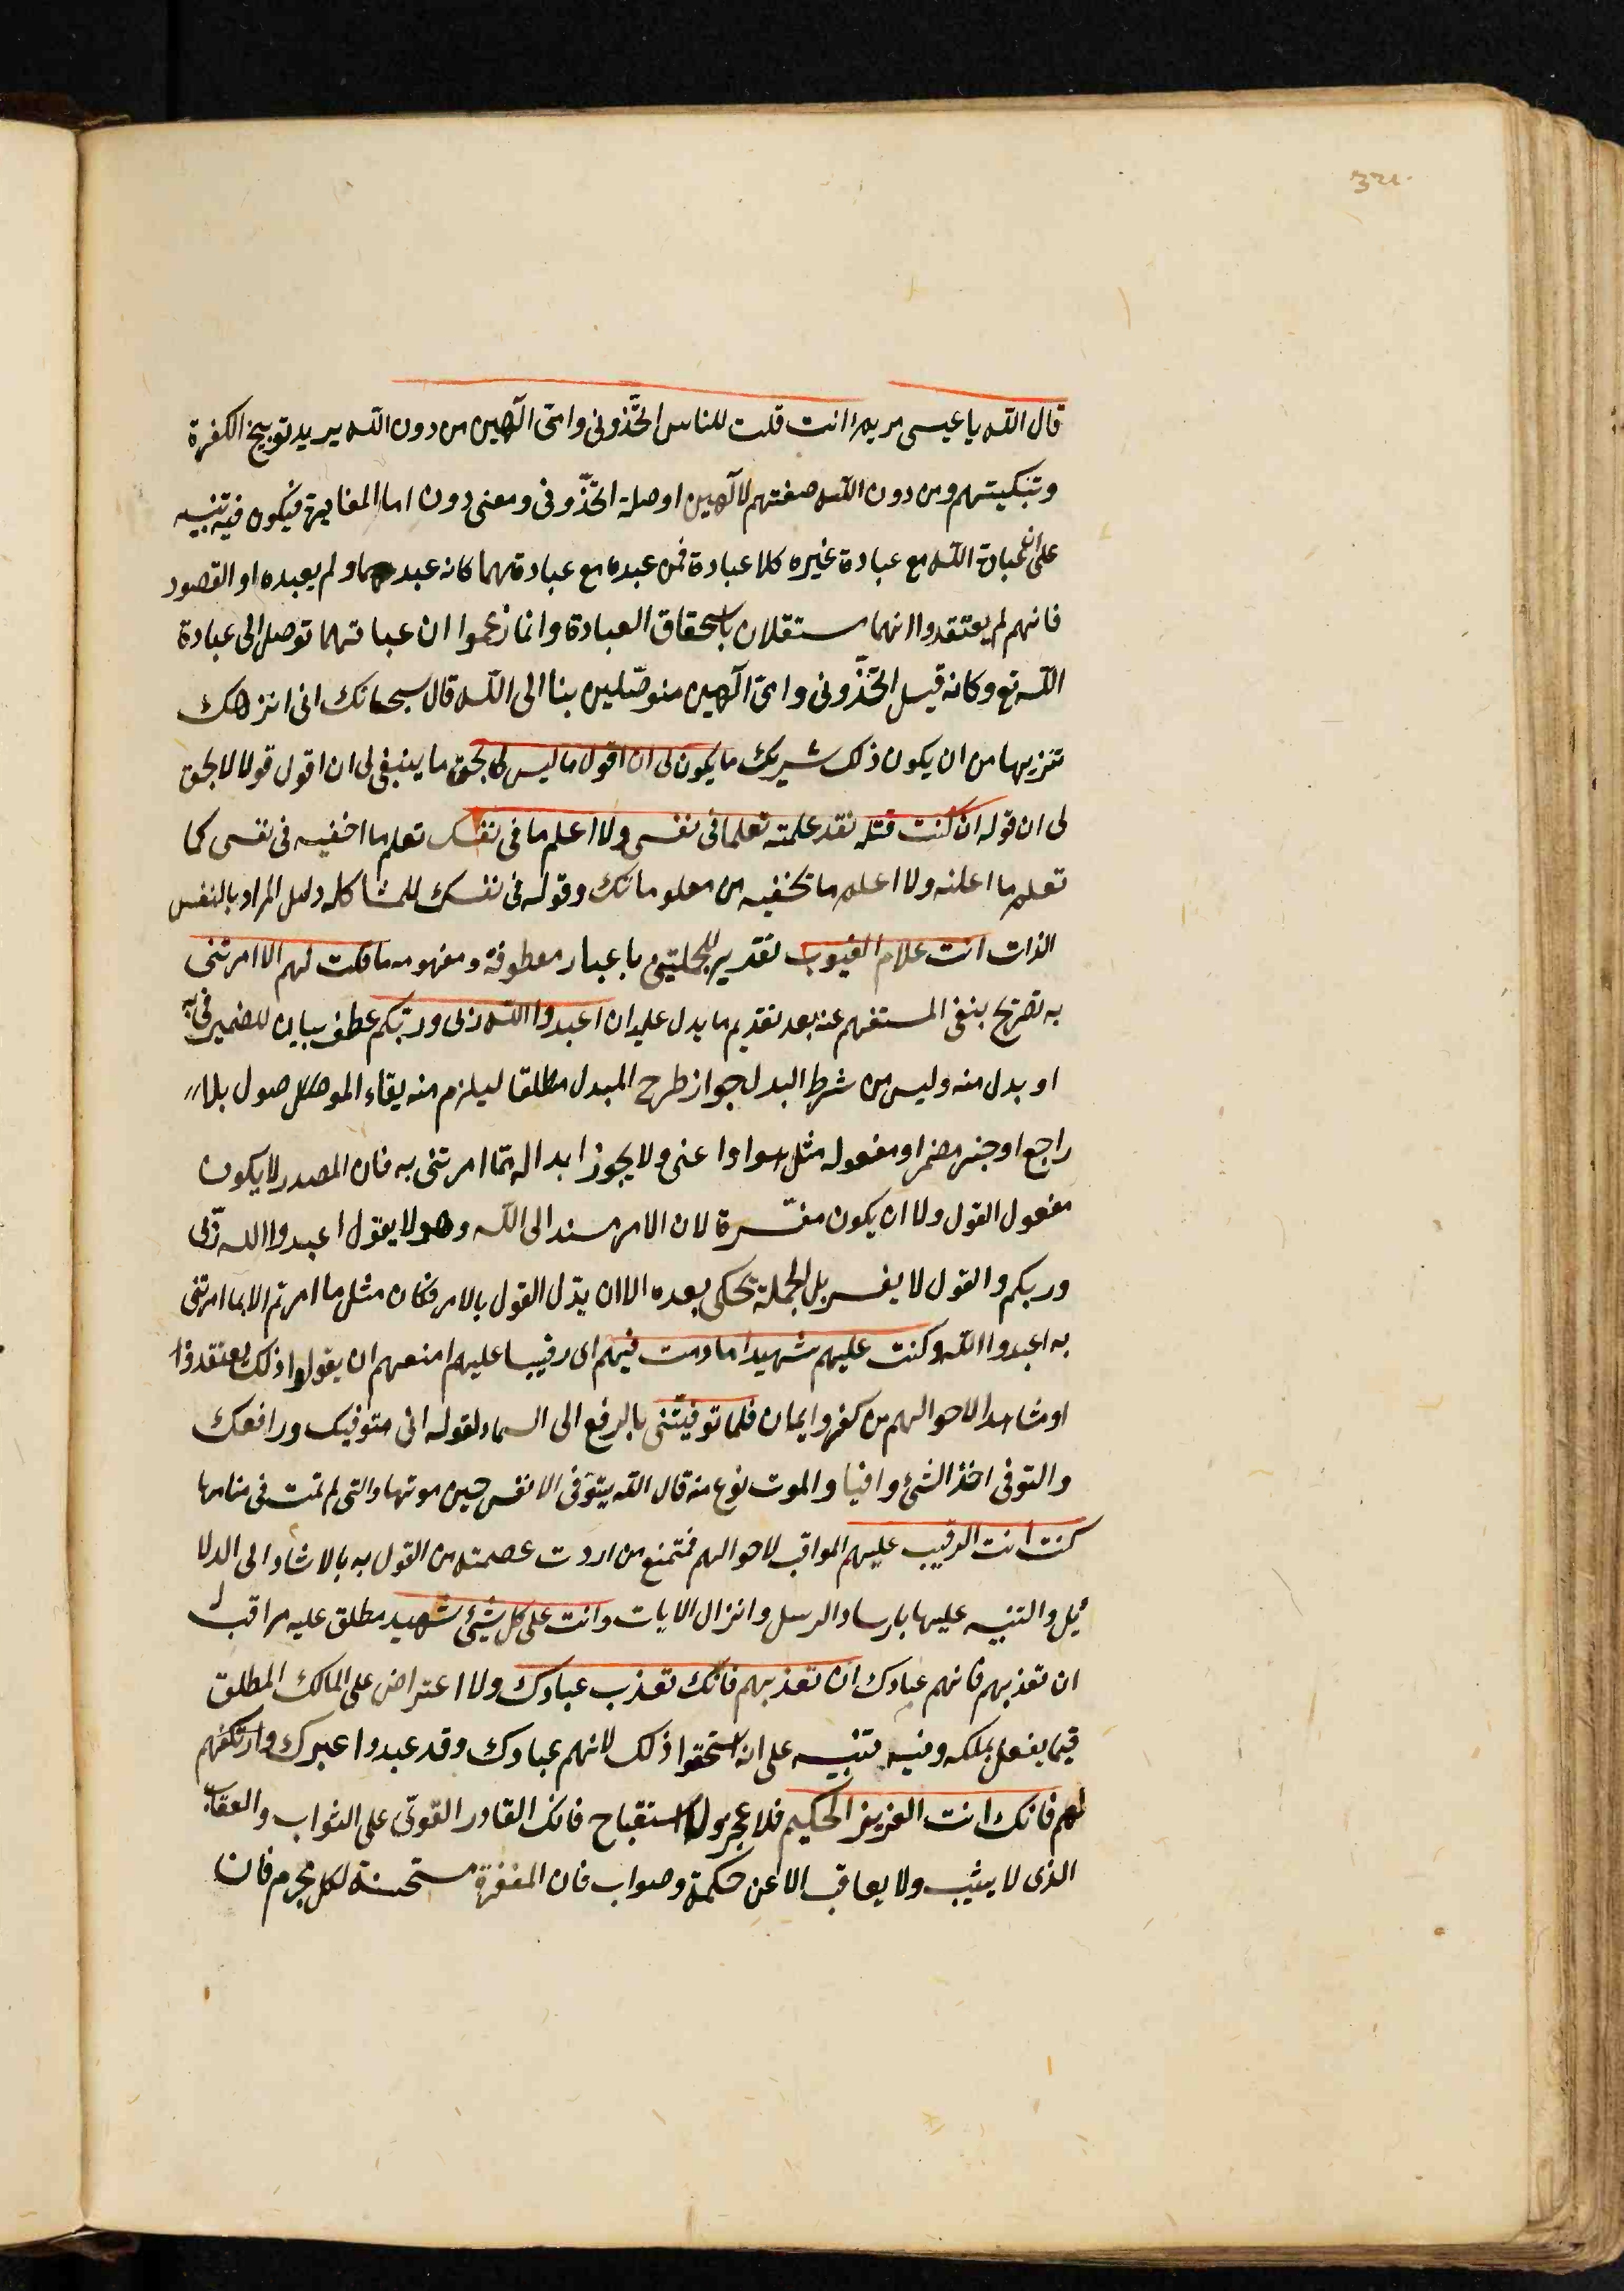 قال الله يا عيسى مريم اانت قلت للناس اتخّذونى وامّى الٓهين من دون الله يريد توبيخ الكفرة
وتبكيتهم ومن دون الله صفتهم لآلهين او صلة اتخّذونى ومعنى دون اما المغايرة فيكون فيه تنبيه
على ان عبادة الله مع عبادة غيره كلا عبادة فمن عبده مع عبادتهما كانه عبدهما ولم يعبده او القصور
فانهم لم يعتقدوا انهما مستقلان باستحقاق العبادة وانما زعموا ان عباتهما توصل الى عبادة
الله تع وكانه قيل اتخّذونى وامّى آلهين متوصّلين بنا الى الله قال سبحانك انى انزهك
تنزيها من ان يكون ذلك شريك ما يكون لى ان اقول ما ليس لى بحق ما ينبغى لى ان اقول قولا لا بحق
لى ان قوله ان كنت قتله نقد علمته تعلم ما فى نفسى ولا اعلم ما فى نفسك تعلم ما اخفيه فى نفسى كما
تعلم ما اعلنه ولا اعلم ما تخفيه من معلوماتك وقوله فى نفسك للمشاكله دليل المراد بالنفس
الذات انت علام الغيوب تقدير للجملتين باعبار معطوفة ومفهومه ما قلت لهم الا امرتنى
به تصريح بنفى المستفهم عنه بعد تقديم ما يدل عليه ان اعبدوا الله ربى وربّكم عطف بيان للضمير فى به
او بدل منه وليس من شرط البدل جواز طرح المبدل مطلقا ليلزم منه بقاء الموصول بلا
راجع او جنر مضمر او مفعوله مثل هوا واعنى ولا يجوز ابداله ممّا امرتنى به فان المصدر لا يكون
مفعول القول ولا ان يكون مفسّرة لان الامر مسند الى الله وهو لا يقول اعبدوا الله ربّى
وربكم والقول لا يفسر بل الجملة تحكى بعده الا ان يدّل القول بالامر فكان مثل ما امرتم الا بما امرتنى
به اعبدوا الله وكنت عليهم شهيدا ما دمت فيهم اى رقيبا عليهم امنعهم ان يقولوا ذلك يعتقدوا
او مشاهدا لاحوالهم من كفر وايمان فلما توفيّتنى بالرفع الى السماء لقوله انى متوفيك ورافعك
والتوفى اخذ الشئ وافيا والموت نوع منه قال الله يتوفى الانفس حين موتها والتى لم تمت فى منامها
كنت انت الرقيب عليهم المواقب لاحوالهم فتمنع من اردت عصمته من القول به بالاشاد الى الدلا
ئيل والتنبيه عليها بارساد الرسل وانزال الايات وانت على كل شئ شهيد مطلق عليه مراقب له
ان تعذبهم فانهم عبادك ان تعذبهم فانك تعذب عبادك ولا اعتراض على المالك المطلق
فيما يفعل بملكه وفيه تنبيه على انه استحقوا ذلك لانهم عبادك وقد عبدوا غيرك وان تغفر
لهم فانك انت العزيز الحكيم فلا عجز ولا استقباح فانك القادر القوىّ على الثواب والعقاب
الذى لا يثيب ولا يعاقب الا عن حكمة وصواب فان المغفرة مستحسنة لكل مجرم فان